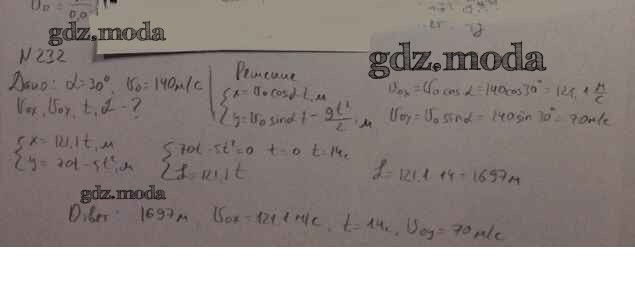 gdz.moda
gdz.moda
N 232
Дано: α=30°, υ₀=140м/с
υ₀ₓ, υ₀ᵧ, t, L - ?
Решение
{x = υ₀cosα t, м
{y = υ₀sinα t - gt²/2, м
υ₀ₓ = υ₀ cos α = 140cos30° = 121,1 м/с
υ₀ᵧ = υ₀ sin α = 140 sin 30° = 70м/с
{x = 121,1t, м
{y = 70t - 5t², м
{70t - 5t² = 0 t = 0 t = 14с
{L = 121,1t
L = 121,1 · 14 = 1697м
gdz.moda
Ответ: 1697м, υ₀ₓ = 121,1 м/с, t = 14с, υ₀ᵧ = 70 м/с